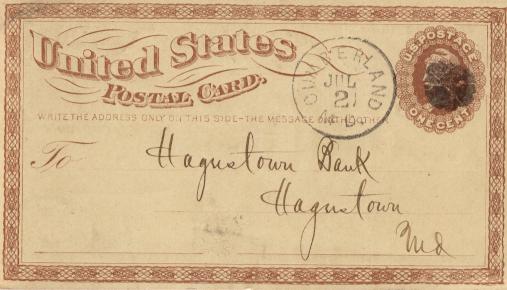 United States
POSTAL CARD.
WRITE THE ADDRESS ONLY ON THIS SIDE-THE MESSAGE ON THE OTHER
U.S. POSTAGE
ONE CENT
CUMBERLAND
JUL
21
MD.
To
Hagerstown Bank
Hagerstown
Md